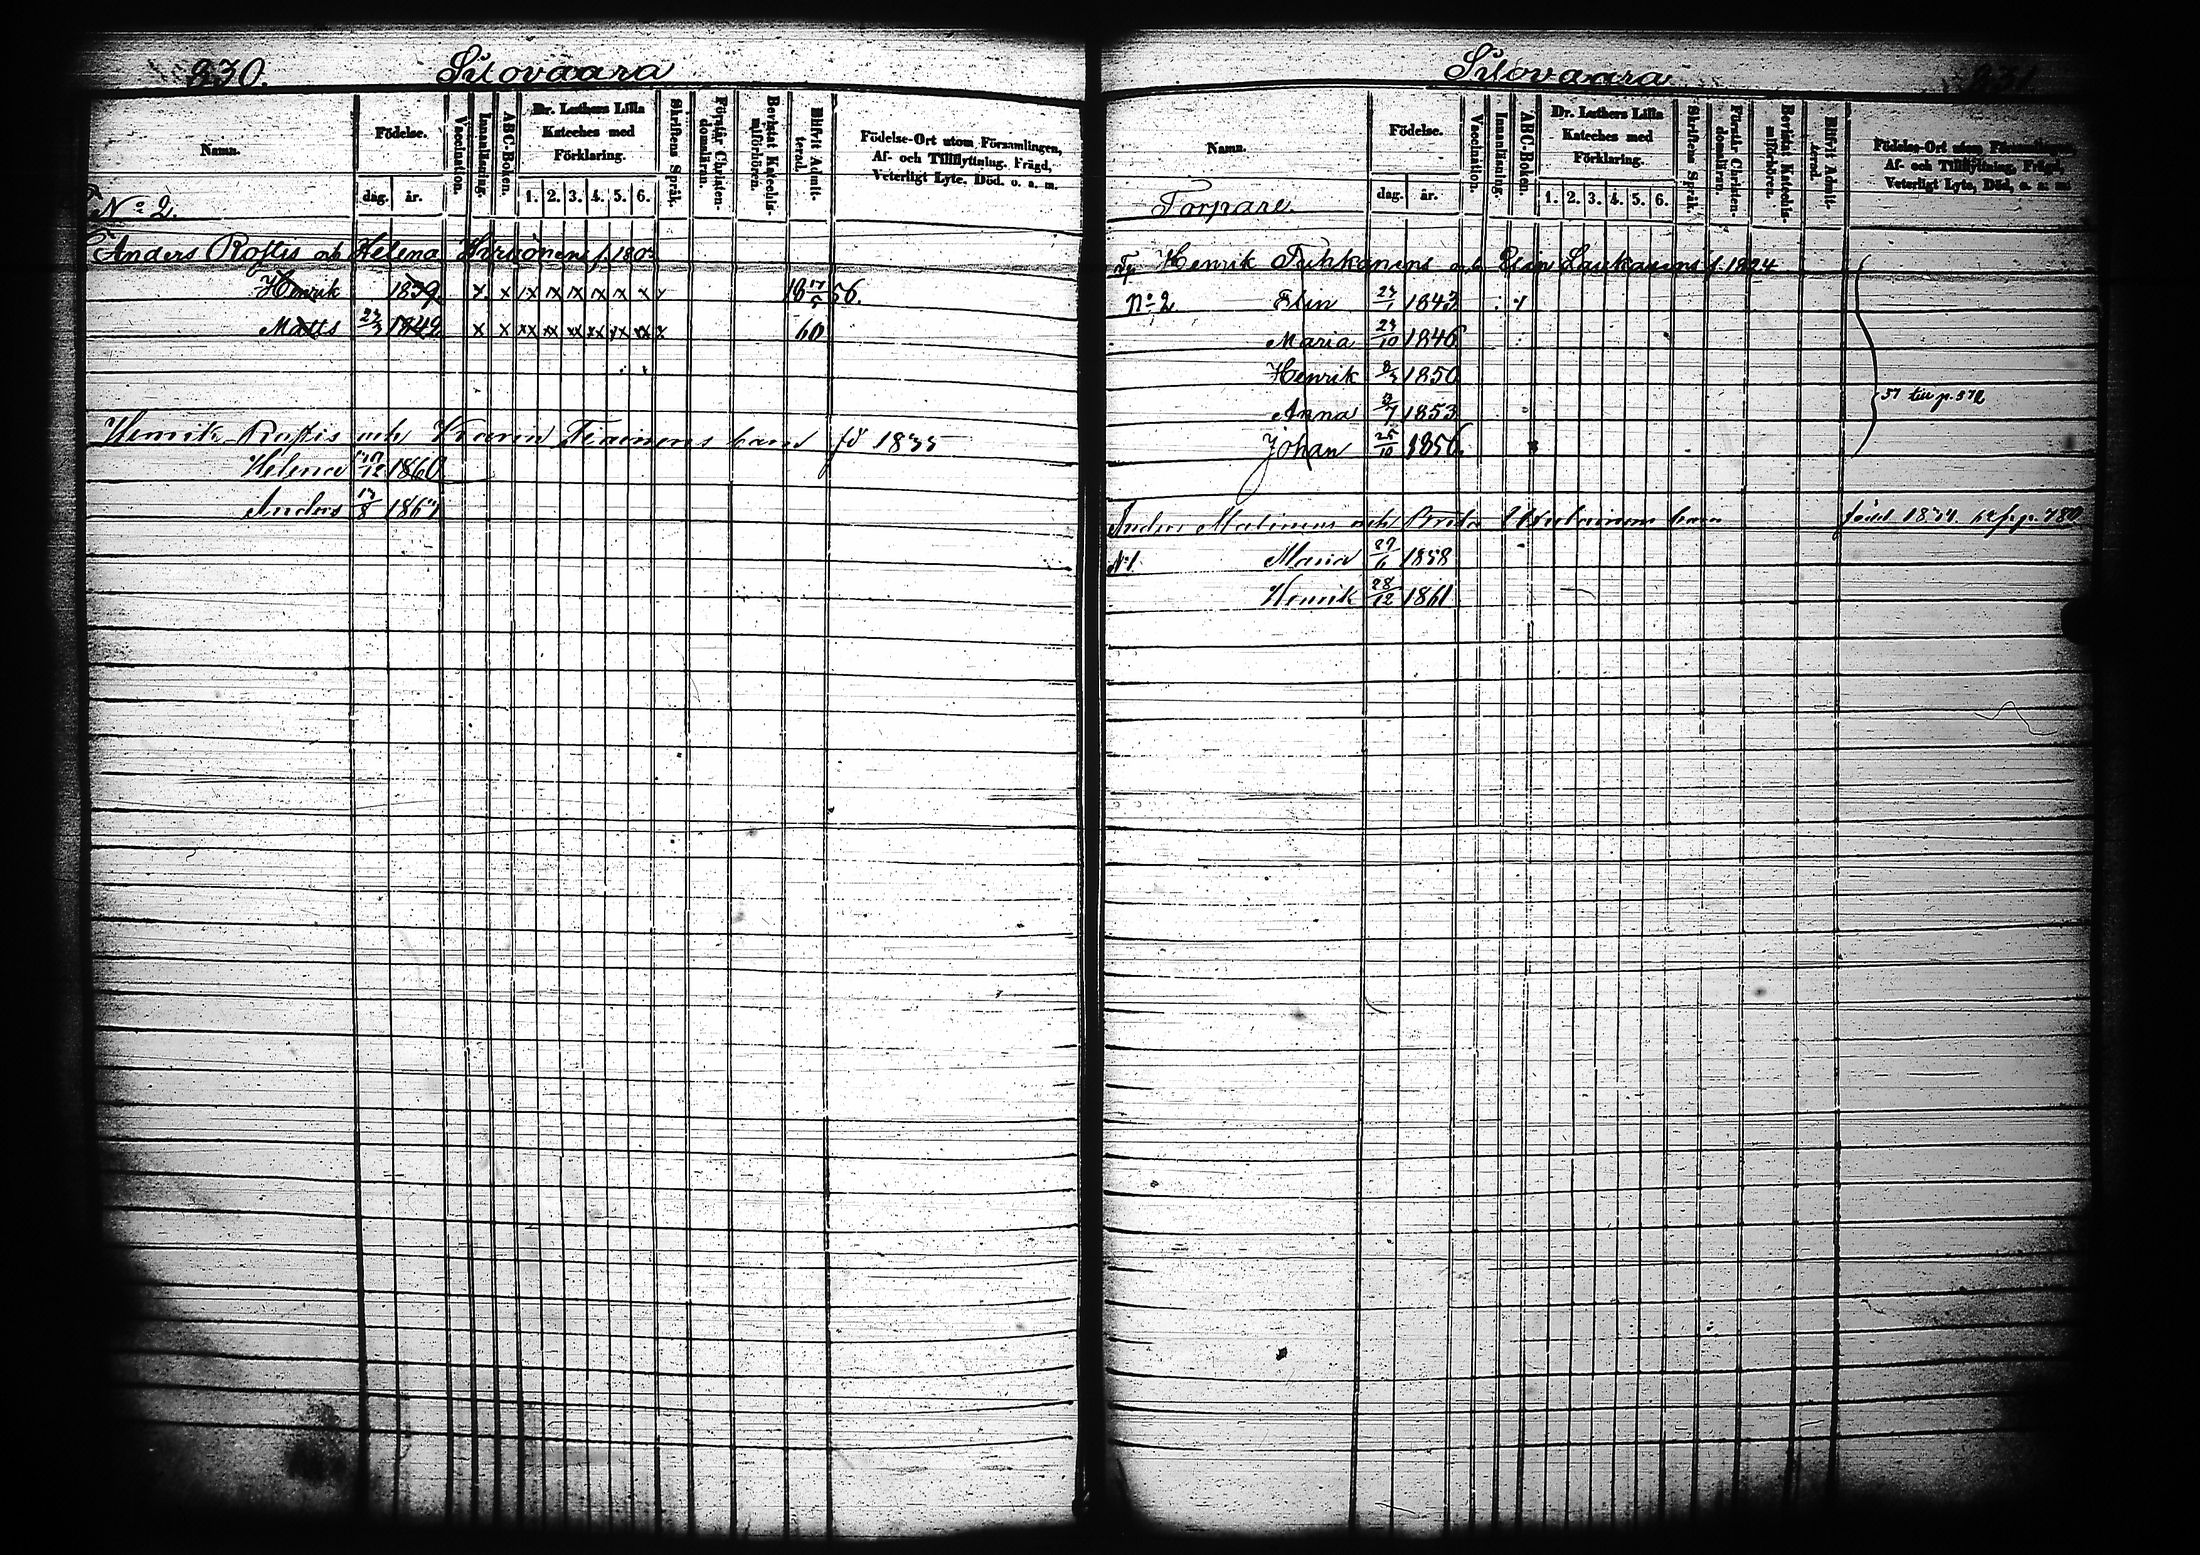 830. Suovaara
Namn. Födelse. dag. år. Vaccination. Innanläsning. ABC-Boken. Dr. Luthers Lilla Kateches med Förklaring. 1. 2. 3. 4. 5. 6. Skriftens Språk. Förstår Christendomsläran. Bevistat Katechismiförhören. Blifvit Admitterad. Födelse-Ort utom Församlingen, Af- och Tillflyttning, Frägd, Veterligt Lyte, Död. o. a. m.
No 2.
Anders Rostis och Helena f. 1803
Henrik 1839. x x x x x x x x x 18 17/5 56.
Matts 23/3 1842 x x xx xx xx xx xx xx x 60
Henrik Rostis och Karin barn fö 1835
Helena 12 1860
Anders 13/8 1864
Suovaara 831
Namn. Födelse. dag. år. Vaccination. Innanläsning. ABC-Boken. Dr. Luthers Lilla Kateches med Förklaring. 1. 2. 3. 4. 5. 6. Skriftens Språk. Förstår Christendomsläran. Bevistat Katechismiförhören. Blifvit Admitterad. Födelse-Ort utom Församlingen, Af- och Tillflyttning, Frägd, Veterligt Lyte, Död, o. a. m.
Torpare.
Henrik Tukkanens och Elin Laukanens f. 1824
No 2 Elin 27/1 1843
Maria 23/10 1846
Henrik 8/3 1850
Anna 3/7 1853
57 till p. 572
Johan 25/10 1856.
Anders Matinens och Brita barn född 1834 780
No 1 Maria 27/6 1858
Henrik 28/12 1861